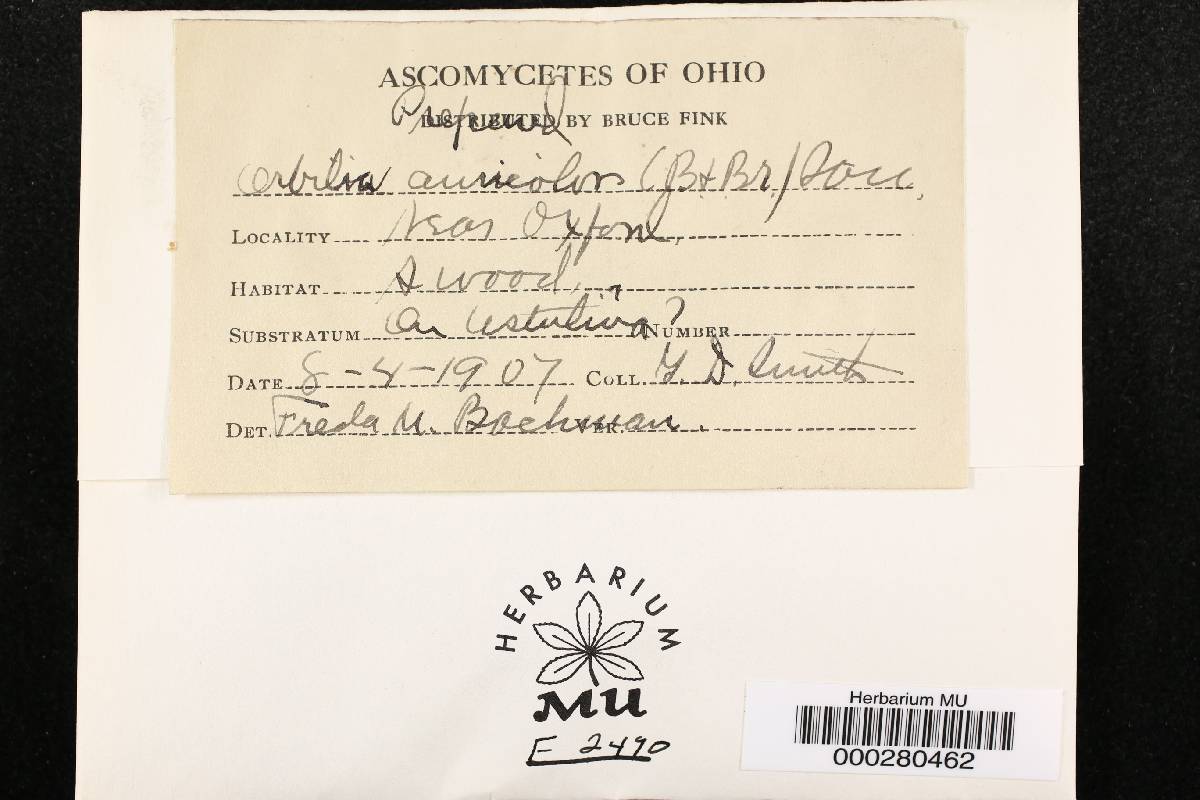 ASCOMYCETES OF OHIO
Prepared
DISTRIBUTED BY BRUCE FINK
Orbilia auricolor (B & Br.) Sacc.
LOCALITY Near Oxford,
HABITAT A wood,
SUBSTRATUM On Ustulina? NUMBER
DATE 8-4-1907 COLL. Y. D. Smith
DET. Freda M. Bachman. VER.
HERBARIUM
MU
F 2490
Herbarium MU
000280462